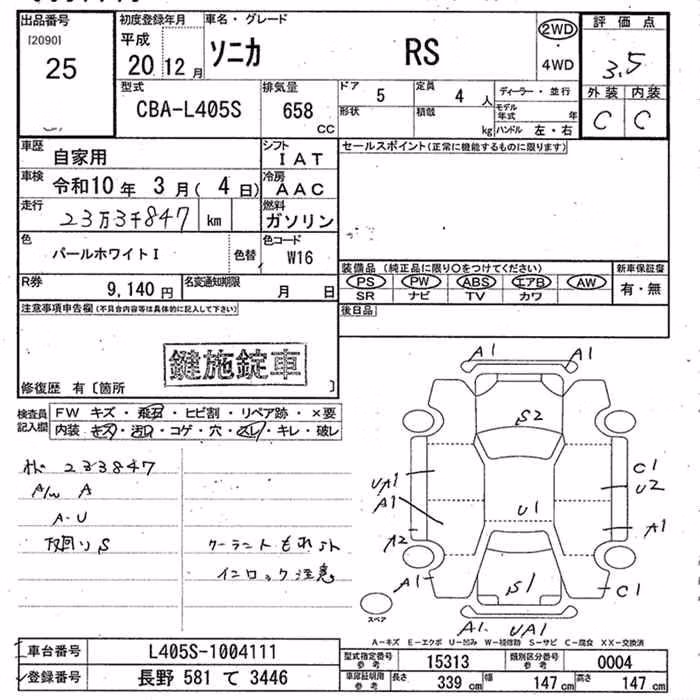 出品番号 初度登録年月 車名・グレード 評価点
[2090] 平成 ソニカ RS 2WD
25 20 12月 4WD 3.5
型式 排気量 ドア 5 定員 4 人 ディーラー・並行 外装 内装
CBA-L405S 658 cc 形状 積載 kg モデル年式 年 C C
ハンドル 左・右
車歴 自家用 シフト IAT セールスポイント(正常に機能するものに限ります)
車検 令和10年 3月(4日) 冷房 AAC
走行 23万3千847 km 燃料 ガソリン
色 パールホワイトI 色替 色コード W16
装備品(純正品に限り○をつけてください) 新車保証書
R券 9,140円 名変通知期限 月 日 PS PW ABS エアB AW 有・無
SR ナビ TV カワ
注意事項申告欄(不具合内容等は具体的に記入して下さい) 後日品
鍵施錠車
修復歴 有〔箇所 〕
検査員記入欄 FW キズ・飛石・ヒビ割・リペア跡・×要
内装 キズ・汚れ・コゲ・穴・スレ・キレ・破レ
A1 A1
S2
233847
A/W A
A-U
S
クーラントもれ
インロック注意
UA1
A1
A2
A1
U1
C1
U2
A1
C1
S1
スペア
A1 UA1
A-キズ E-エクボ U-凹み W-補修跡 S-サビ C-腐食 XX-交換済
車台番号 L405S-1004111 型式指定番号 参考 15313 類別区分番号 参考 0004
登録番号 長野 581 て 3446 車庫証明用 参考 長さ 339 cm 幅 147 cm 高さ 147 cm